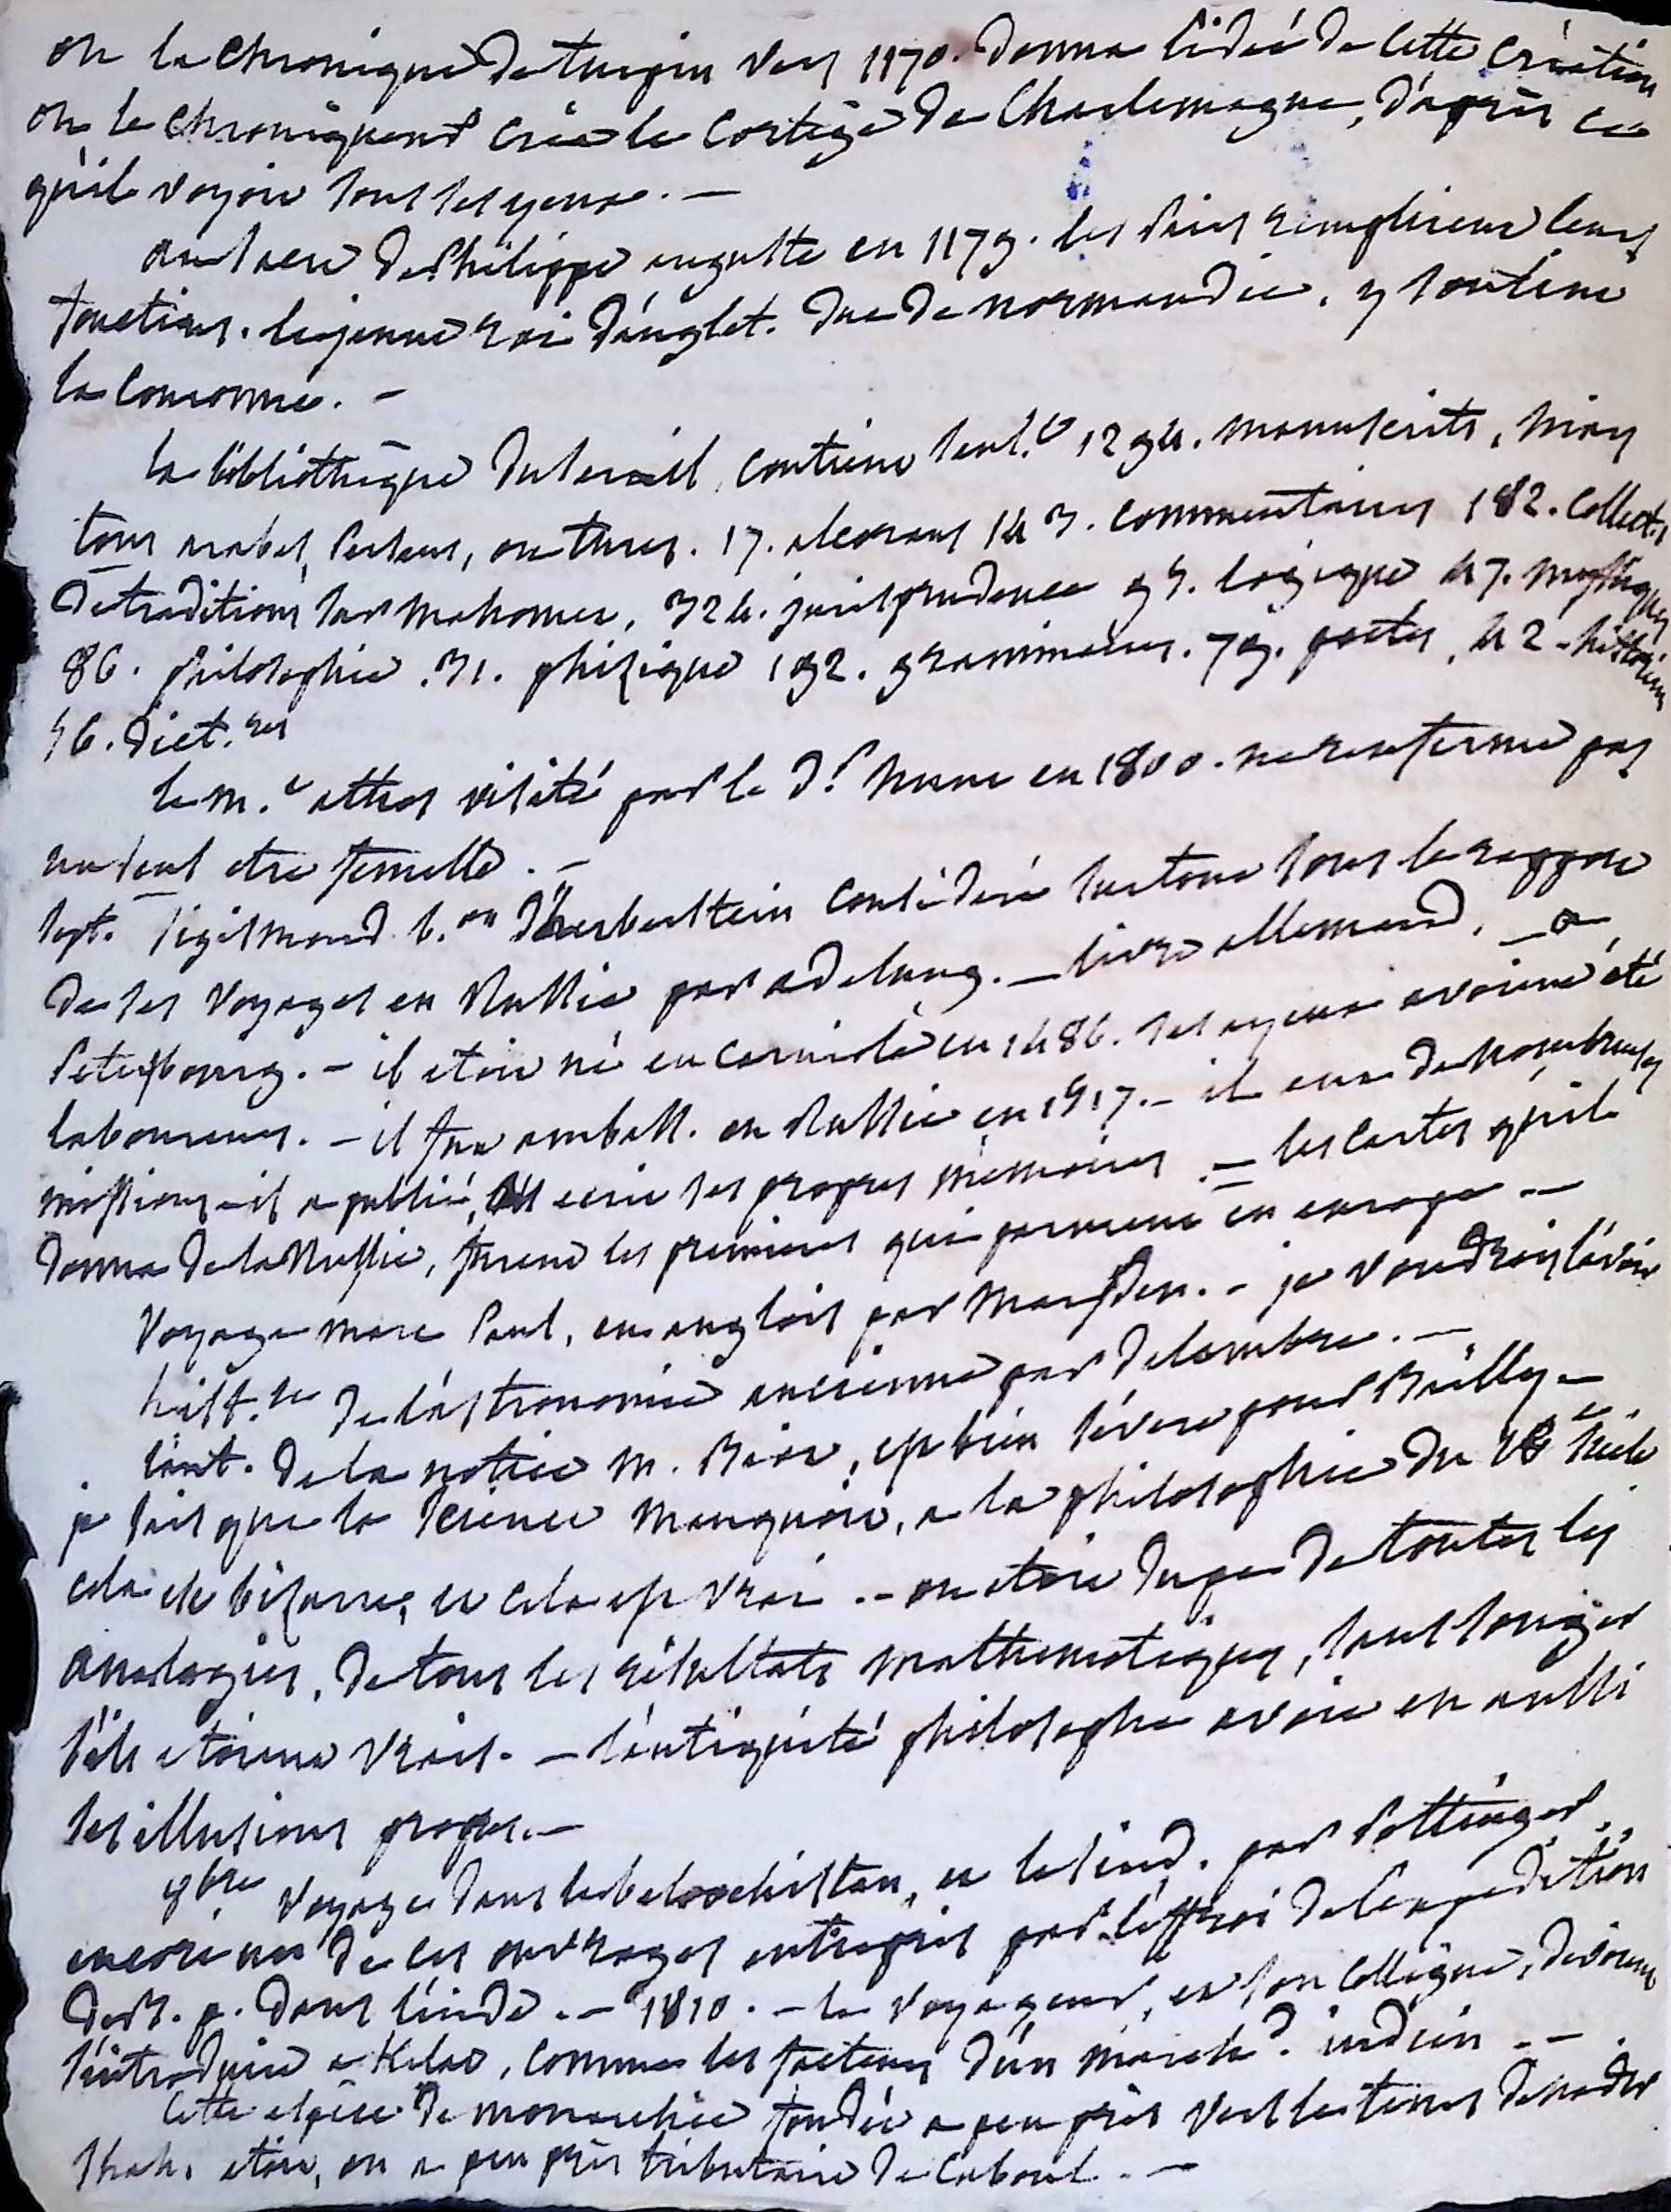 ou la chronique de turpin vers 1170. donna l'idée de cette création
ou le chroniqueur créa le cortège de Charlemagne, d'après ce
qu'il voyoit sous ses yeux. —
au sacre de Philippe auguste en 1179. les pairs remplirent leurs
fonctions. le jeune roi d'anglet. duc de normandie, y soutint
la couronne. —
la bibliothèque du serail, contient seul.t 1294. manuscrits,
tous arabes, persans, ou turcs. 17. alcorans 143. commentaires 182. collect.s
de traditions sur mahomet, 324. jurisprudence 95. logique 47. mystiques
86. philosophie. 31. phizique 192. grammaires. 79. poetes, 42 - historiens
56. dict.res
le m.t athos visité par le d.r hunt en 1800. ne renferme pas
un seul etre femelle. —
sept. sigismond b.on d'herberstein consideré surtout sous le rapport
de ses voyages en Russie par adelung. — livre allemand. — a
Petersbourg. — il etoit né en carniole en 1486. ses ayeux avoient été
laboureurs. — il fut ambass. en Russie en 1517. — il eut de nombreuses
missions - il a publié, et ecrit ses propres mémoires. — les cartes qu'il
donna de la Russie, furent les premieres qui parurent en europe. —
Voyage marc Paul, en anglois par Marsden. — je voudrois l'avoir
hist.re de l'astronomie ancienne par delambre. —
l'aut. de la notice M. Biot, est bien sévère pour Bailly —
je sais que la science manquoit, a la philosophie du 18e siecle
cela est bizarre, et cela est vrai. — on etoit dupe de toutes les
analogies, de tous les résultats mathematiques, sans songer
s'ils etoient vrais. — l'antiquité philosophe avoit eu aussi
ses illusions propres. —
9bre voyage dans le beloochistan, et le sind. par Pottinger.
encore un de ces ouvrages entrepris par l'effroi de l'expedition
de B. p. dans l'inde. — 1810. — le voyageur, et son collègue, devoient
s'introduire a Kelat, comme les facteurs d'un march.d indien. —
Cette espèce de monarchie fondée a peu près vers le tems de nadir
shah. etoit, ou a peu près tributaire de Caboul. —